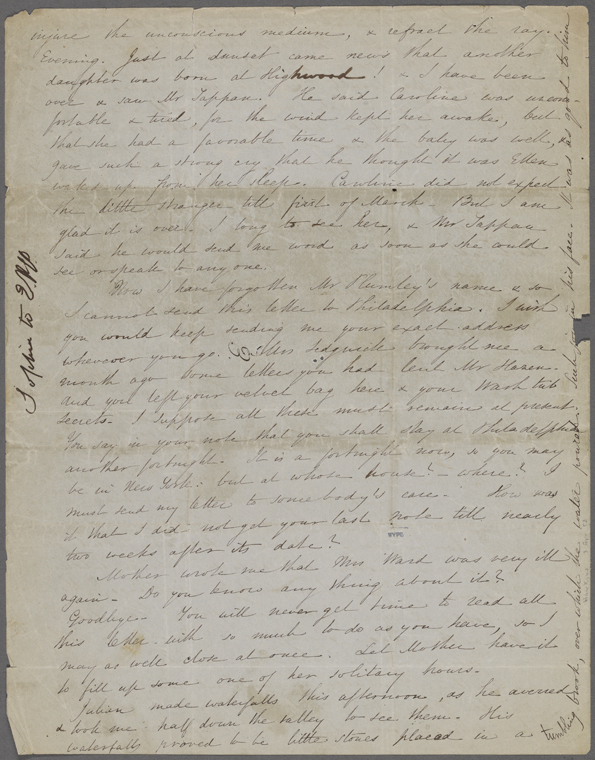 injure the unconscious medium, & refract the ray.
Evening. Just at sunset came news that another
daughter was born at Highwood! & I have been
over & saw Mr Tappan. He said Caroline was uncom-
fortable & tired, for the wind kept her awake, but
that she had a favorable time & the baby was well, &
gave such a strong cry that he thought it was Ellen
waked up from her sleep. Caroline did not expect
the little stranger till first of March. But I am
glad it is over. I long to see her, & Mr Tappan
said he would send me word as soon as she could
see or speak to any one.
Now I have forgotten Mr Plumley's name & so
I cannot send this letter to Philadelphia. I wish
you would keep sending me your exact address
wherever you go. Miss Sedgwick brought me a
month ago some letters you had lent Mr Hazen.
And you left your velvet bag here & your Wash tub
secrets. I suppose all these must remain at present.
You say in your note that you shall stay at Philadelphia
another fortnight. It is a fortnight now, so you may
be in New York: but at whose house? — where? I
must send my letter to somebody's care. How was
it that I did not get your last note till nearly
two weeks after its date?
Mother wrote me that Mrs Ward was very ill
again. Do you know any thing about it?
Goodbye. You will never get time to read all
this letter with so much to do as you have, so I
may as well close at once. Let Mother have it
to fill up some one of her solitary hours.
Julian made waterfalls this afternoon, as he averred
& took me half down the valley to see them. His
waterfalls proved to be little stones placed in a
tumbling brook, over which the water poured. Such joy in his face. It was as good to him
Sophia to EPP
NYPL